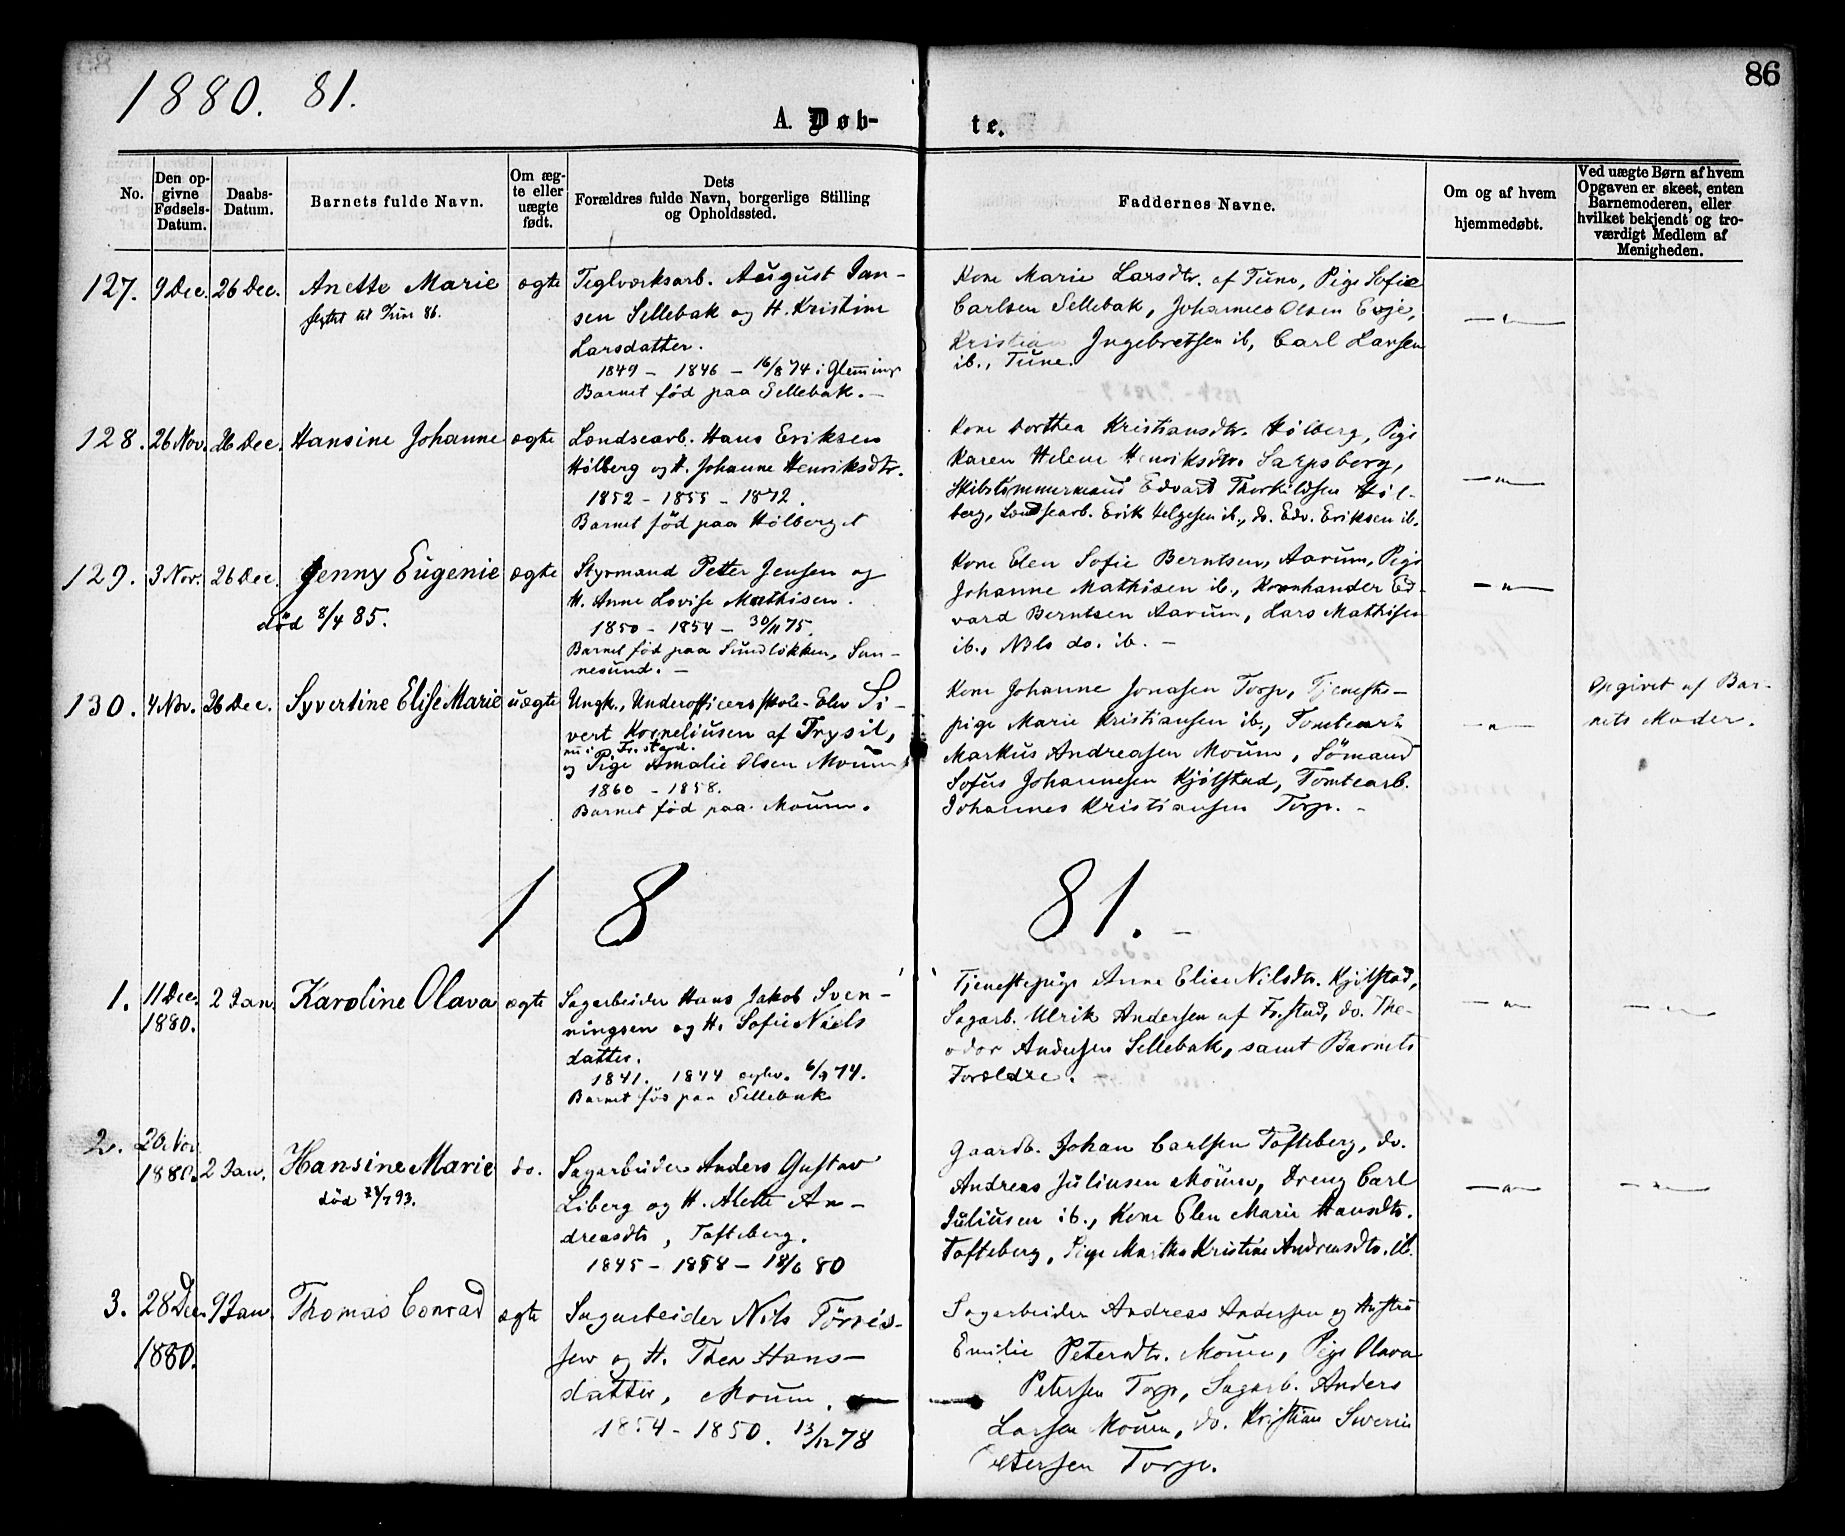 86
1880. 81.
A. Døb-
te.
No.
Den op-
givne
Fødsels-
Datum.
Daabs-
Datum.
Barnets fulde Navn.
Om æg-
te eller
uægte
født.
Dets
Forældres fulde Navn, borgerlige Stilling
og Opholdssted.
Faddernes Navne.
Om og af hvem
hjemmedøbt.
Ved uægte Børn af hvem
Opgaven er skeet, enten
Barnemoderen, eller
hvilket bekjendt og tro-
værdigt Medlem af
Menigheden.
127. 9 Dec. 26 Dec. Anette Marie ægte
flyttet til Tune 86.
Teglværksarb. August Jan-
sen Sellebak og H. Kristine
Larsdatter.
1849 - 1846 - 16/8 74 i Glemminge
Barnet fød paa Sellebak. -
Kone Marie Larsdtr. af Tune, Pige Sofie
Carlsen Sellebak, Johannes Olsen Evje,
Kristian Ingebretsen ib, Carl Larsen
ib., Tune.
— „ —
128. 26 Nov. 26 Dec. Hansine Johanne ægte
Londsearb. Hans Eriksen
Hölberg og H. Johanne Henriksdtr.
1852 - 1855 - 1872.
Barnet fød paa Hölberget
Kone Dorthea Kristiansdtr. Hølberg, Pige
Karen Helene Henriksdtr. Sarpsborg,
Skibstømmermand Edvard Thorkildsen Høl-
berg, Londsearb. Erik Helgesen ib., do. Edv. Eriksen ib.
— „ —
129. 3 Nov. 26 Dec. Jenny Eugenie ægte
død 8/4 85.
Styrmand Petter Jensen og
H. Anne Lovise Mathisen.
1850 - 1854 - 30/11 75.
Barnet fød paa Sundløkken, San-
nesund. -
Kone Elen Sofie Berntsen, Aarum, Pige
Johanne Mathisen ib., Kornhander Ed-
vard Berntsen Aarum, Lars Mathisen
ib., Nils do. ib. -
— „ —
130. 4 Nov. 26 Dec. Syvertine Elise Marie uægte
Ungk., Underofficersskole-Elev Si-
vert Korneliusen af Trysil,
nu i Fr.stad.
og Pige Amalie Olsen Moum
1860 - 1858.
Barnet fød paa Moum.
Kone Johanne Jonasen Torp, Tjeneste-
pige Marie Kristiansen ib., Tomtearb.
Markus Andreasen Moum, Sömand
Sofus Johannesen Kjølstad, Tomtearb.
Johannes Kristiansen Torp. -
— „ —
Opgivet af Bar-
nets Moder.
18 81. -
1. 11 Dec. 1880. 2 Jan. Karoline Olava ægte
Sagarbeider Hans Jakob Sven-
ningsen og H. Sofie Niels
datter.
1841. 1844 ægtev. 6/9 74.
Barnet fød paa Sellebak
Tjenestepige Anne Elise Nilsdtr. Kjølstad,
Sagarb. Ulrik Andersen af Fr.stad, do. The-
odor Andersen Sellebak, samt Barnets
Forældre.
— „ —
— „ —
2. 20 Nov 1880. 2 Jan. Hansine Marie do.
død 7/93.
Sagarbeider Anders Gustav
Liberg og H. Alette An-
dreasdtr, Tofteberg.
1845 - 1858 - 18/6 80
Gaardb. Johan Carlsen Tofteberg, do.
Andreas Juliusen Moum, Dreng Carl
Juliusen ib., Kone Elen Marie Hansdtr.
Tofteberg, Pige Martha Kristine Andreasdtr. ib.
— „ —
— „ —
3. 28 Dec. 1880. 9 Jan. Thomas Conrad ægte
Sagarbeider Nils Törris-
sen og H. Thea Hans-
datter, Moum.
1854 - 1850. 13/12 78
Sagarbeider Andreas Andersen og Hustru
Emilie Petersdtr. Moum, Pige Olava
Petersen Torp, Sagarb. Anders
Larsen Moum, do. Kristian Severin
Petersen Torp.